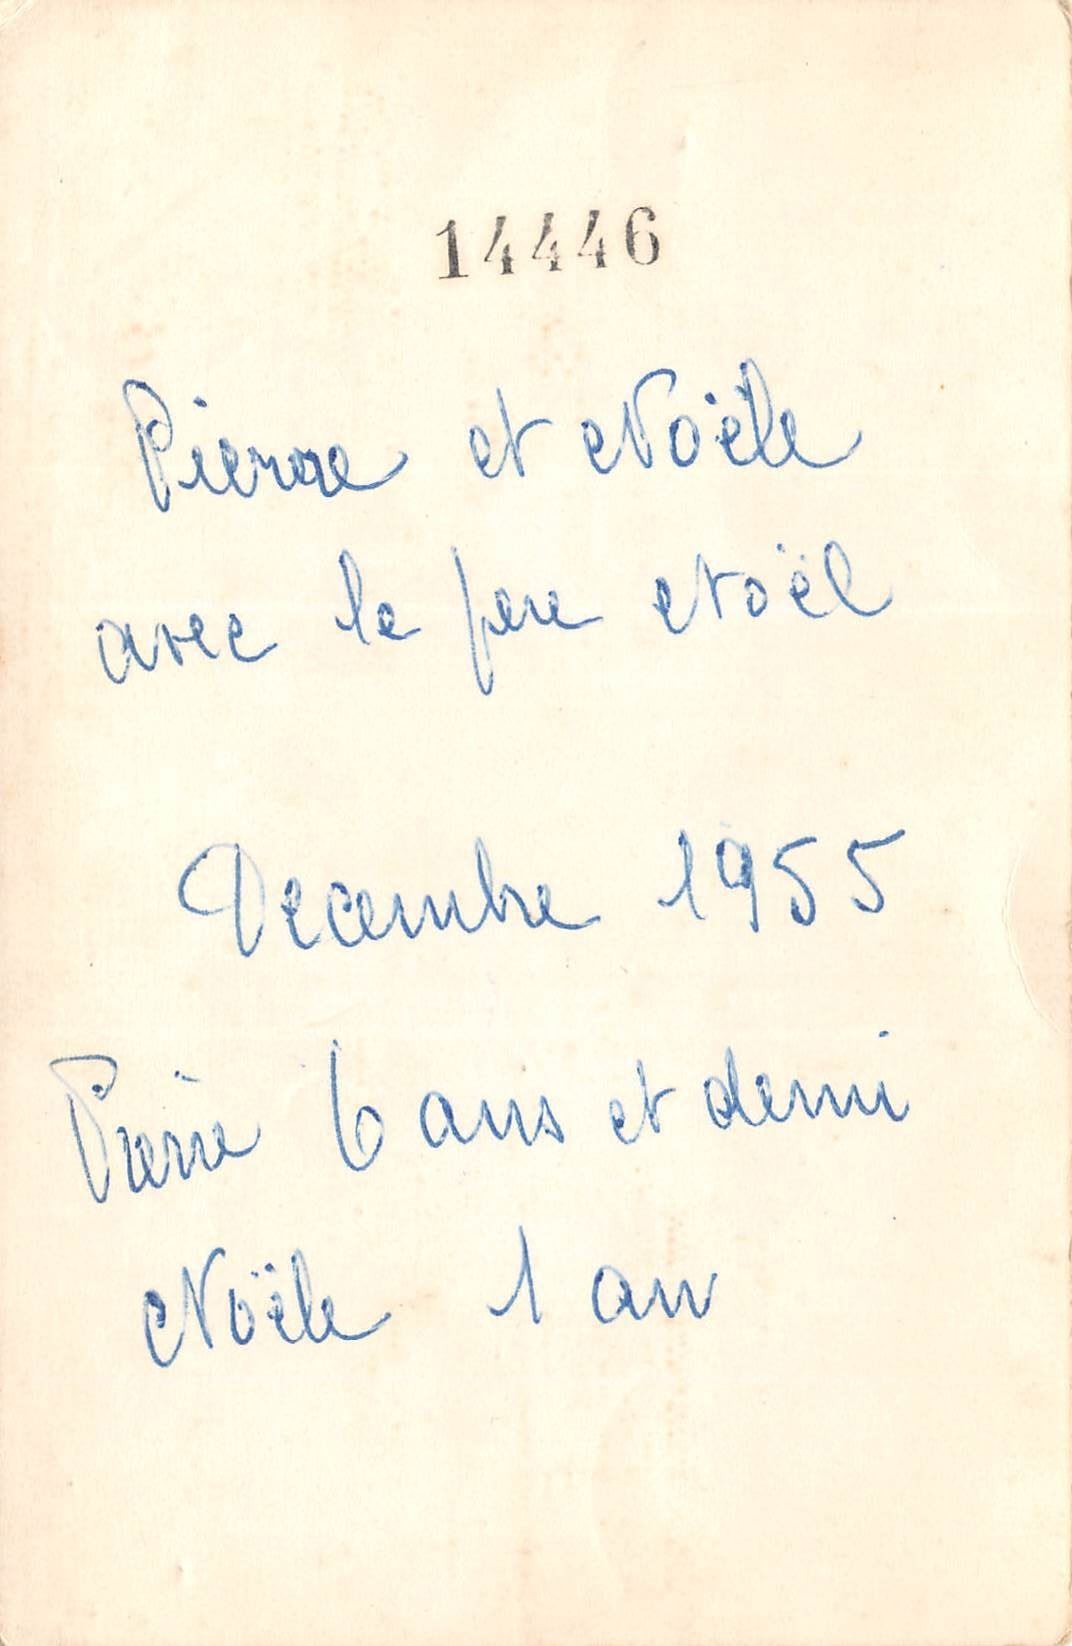 14446
Pierre et Noële
avec le pere Noël
Decembre 1955
Pierre 6 ans et demi
Noële 1 an